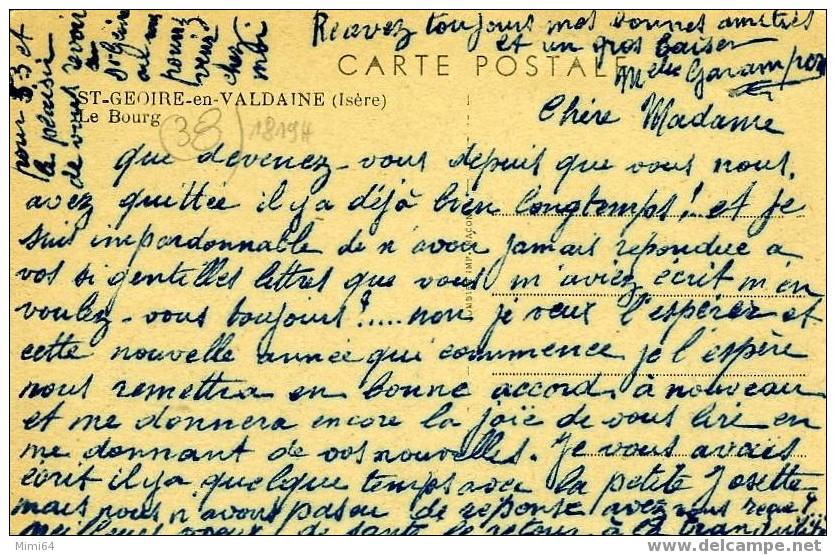 Recevez toujours mes bonnes amitiés
et un gros baiser
CARTE POSTALE
Melle
ST-GEOIRE-en-VALDAINE (Isère)
Le Bourg
38
18194
Chère Madame
que devenez-vous depuis que vous nous
avez quittée il y a déjà bien longtemps! et je
suis impardonnable de n'avoir jamais repondue a
vos si gentilles lettres que vous m'aviez écrit m'en
voulez-vous toujours?..... non je veux l'espérez et
cette nouvelle année qui commence je l'espère
nous remettra en bonne accord à nouveau
et me donnera encore la joïe de vous lire en
me donnant de vos nouvelles. Je vous avais
écrit il y a quelque temps avec la petite Josette
mais nous n'avons pas eu de reponse avez vous reçue?
meilleurs voeux de santé le retour à la
pour 53 et
le plaisir
de vous revoir
à
St Geoire
ou
pouvez
venir
chez
moi
Mimi64
www.delcampe.net